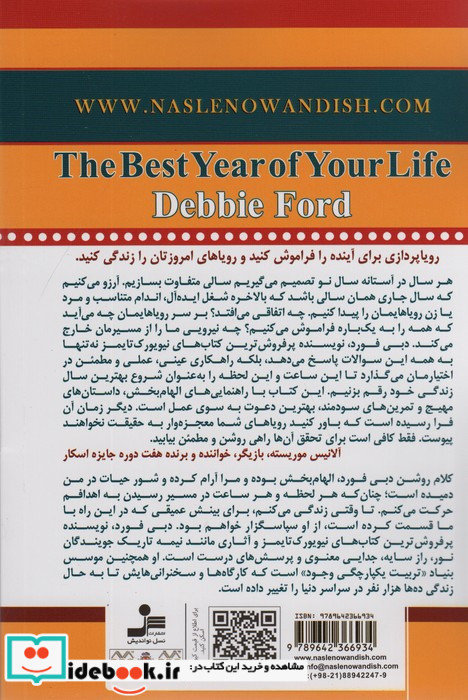 WWW.NASLENOWANDISH.COM
The Best Year of Your Life
Debbie Ford
رویاپردازی برای آینده را فراموش کنید و رویاهای امروزتان را زندگی کنید.
هر سال در آستانه سال نو تصمیم می‌گیریم سالی متفاوت بسازیم. آرزو می‌کنیم
که سال جاری همان سالی باشد که بالاخره شغل ایده‌آل، اندام متناسب و مرد
یا زن رویاهایمان را پیدا کنیم. چه اتفاقی می‌افتد؟ بر سر رویاهایمان چه می‌آید
که همه را به یک‌باره فراموش می‌کنیم؟ چه نیرویی ما را از مسیرمان خارج
می‌کند. دبی فورد، نویسنده پرفروش‌ترین کتاب‌های نیویورک‌تایمز نه‌تنها
به همه این سوالات پاسخ می‌دهد، بلکه راهکاری عینی، عملی و مطمئن در
اختیارمان می‌گذارد تا این ساعت و این لحظه را به‌عنوان شروع بهترین سال
زندگی خود رقم بزنیم. این کتاب با راهنمایی‌های الهام‌بخش، داستان‌های
مهیج و تمرین‌های سودمند، بهترین دعوت به سوی عمل است. دیگر زمان آن
فرا رسیده است که باور کنید رویاهای شما معجزه‌وار به حقیقت نخواهند
پیوست. فقط کافی است برای تحقق آن‌ها راهی روشن و مطمئن بیابید.
آلانیس موریسته، بازیگر، خواننده و برنده هفت دوره جایزه اسکار
کلام روشن دبی فورد، الهام‌بخش بوده و مرا آرام کرده و شور حیات در من
دمیده است؛ چنان‌که هر لحظه و هر ساعت در مسیر رسیدن به اهدافم
حرکت می‌کنم. تا وقتی زندگی می‌کنم، برای بینش عمیقی که در این راه با
ما قسمت کرده است، از او سپاسگزار خواهم بود. دبی فورد، نویسنده
پرفروش‌ترین کتاب‌های نیویورک‌تایمز و آثاری مانند نیمه تاریک جویندگان
نور، راز سایه، جدایی معنوی و پرسش‌های درست است. او همچنین موسس
بنیاد «تربیت یکپارچگی وجود» است که کارگاه‌ها و سخنرانی‌هایش تا به حال
زندگی ده‌ها هزار نفر در سراسر دنیا را تغییر داده است.
انتشارات
نسل نواندیش
ISBN: ۹۷۸۹۶۴۲۳۶۶۹۳۴
9 789642 366934
www.naslenowandish.com
info@naslenowandish.com
(+98-21) 88942247-9
مشاهده و خرید این کتاب در:
iidebook.ir